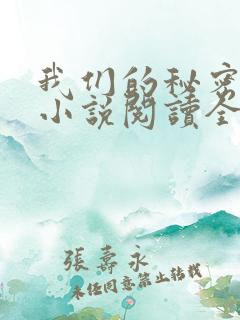 我们的秘密
小说阅读全
張壽永
未经同意禁止转载